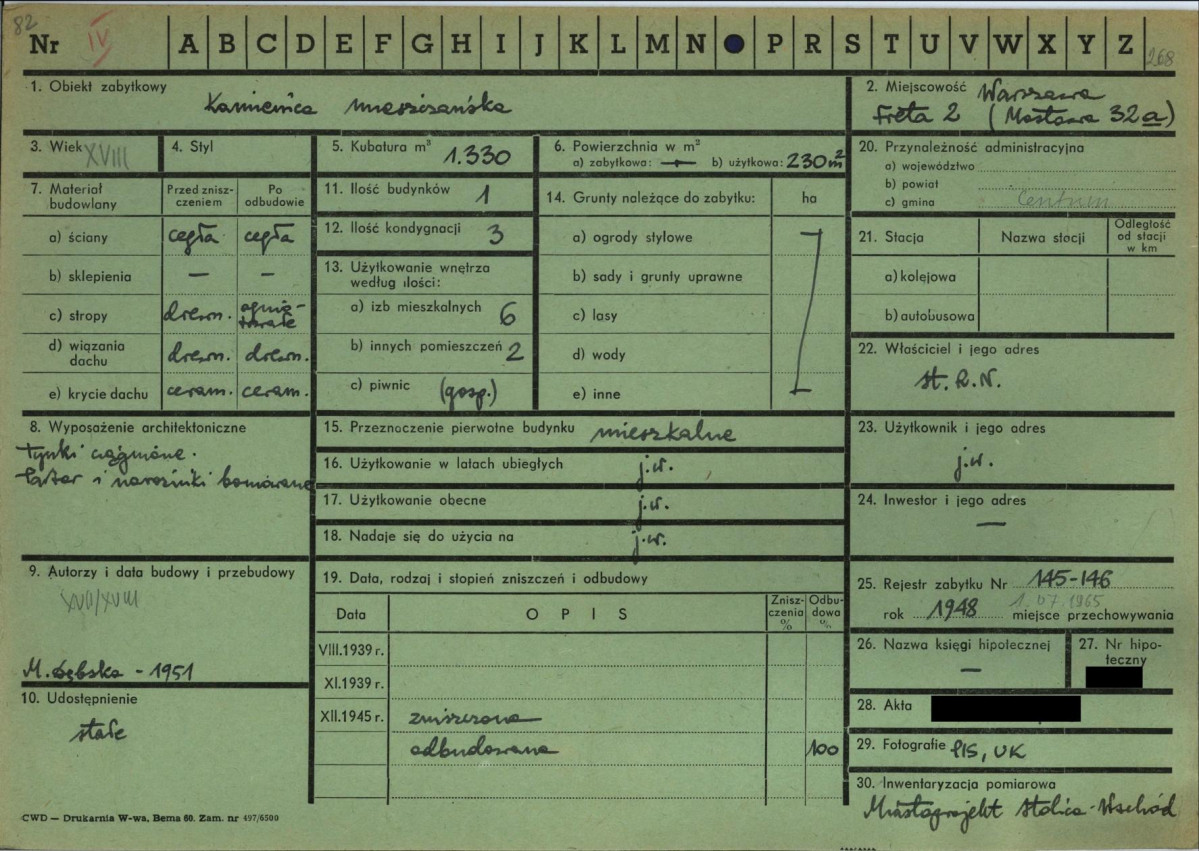 82
Nr IV A B C D E F G H I J K L M N P R S T U V W X Y Z 268
1. Obiekt zabytkowy
Kamienica mieszczańska
2. Miejscowość Warszawa
Freta 2 (Mostowa 32a)
3. Wiek XVIII
4. Styl
5. Kubatura m³ 1.330
6. Powierzchnia w m²
a) zabytkowa: — b) użytkowa: 230 m²
20. Przynależność administracyjna
a) województwo
b) powiat
c) gmina Centrum
7. Materiał budowlany
Przed zniszczeniem
Po odbudowie
a) ściany cegła cegła
b) sklepienia — —
c) stropy drewn. ogniotrwałe
d) wiązania dachu drewn. drewn.
e) krycie dachu ceram. ceram.
11. Ilość budynków 1
12. Ilość kondygnacji 3
13. Użytkowanie wnętrza
według ilości:
a) izb mieszkalnych 6
b) innych pomieszczeń 2
c) piwnic (gosp.)
14. Grunty należące do zabytku: ha
a) ogrody stylowe
b) sady i grunty uprawne
c) lasy
d) wody
e) inne
21. Stacja Nazwa stacji Odległość od stacji w km
a) kolejowa
b) autobusowa
22. Właściciel i jego adres
St. R.N.
8. Wyposażenie architektoniczne
Tynki ciągnione.
i narożniki boniowane
15. Przeznaczenie pierwotne budynku mieszkalne
16. Użytkowanie w latach ubiegłych j.w.
17. Użytkowanie obecne j.w.
18. Nadaje się do użycia na j.w.
23. Użytkownik i jego adres
j.w.
24. Inwestor i jego adres
—
9. Autorzy i data budowy i przebudowy
XVII/XVIII
M. Dębska - 1951
10. Udostępnienie
stałe
19. Data, rodzaj i stopień zniszczeń i odbudowy
Data OPIS Zniszczenia % Odbudowa %
VIII.1939 r.
XI.1939 r.
XII.1945 r. zniszczona
odbudowana 100
25. Rejestr zabytku Nr 145-146
rok 1948 1.07.1965 miejsce przechowywania
26. Nazwa księgi hipotecznej
—
27. Nr hipoteczny
28. Akta
29. Fotografie PIS, UK
30. Inwentaryzacja pomiarowa
Miastoprojekt Stolica-Wschód
CWD — Drukarnia W-wa, Bema 60. Zam. nr 497/6500